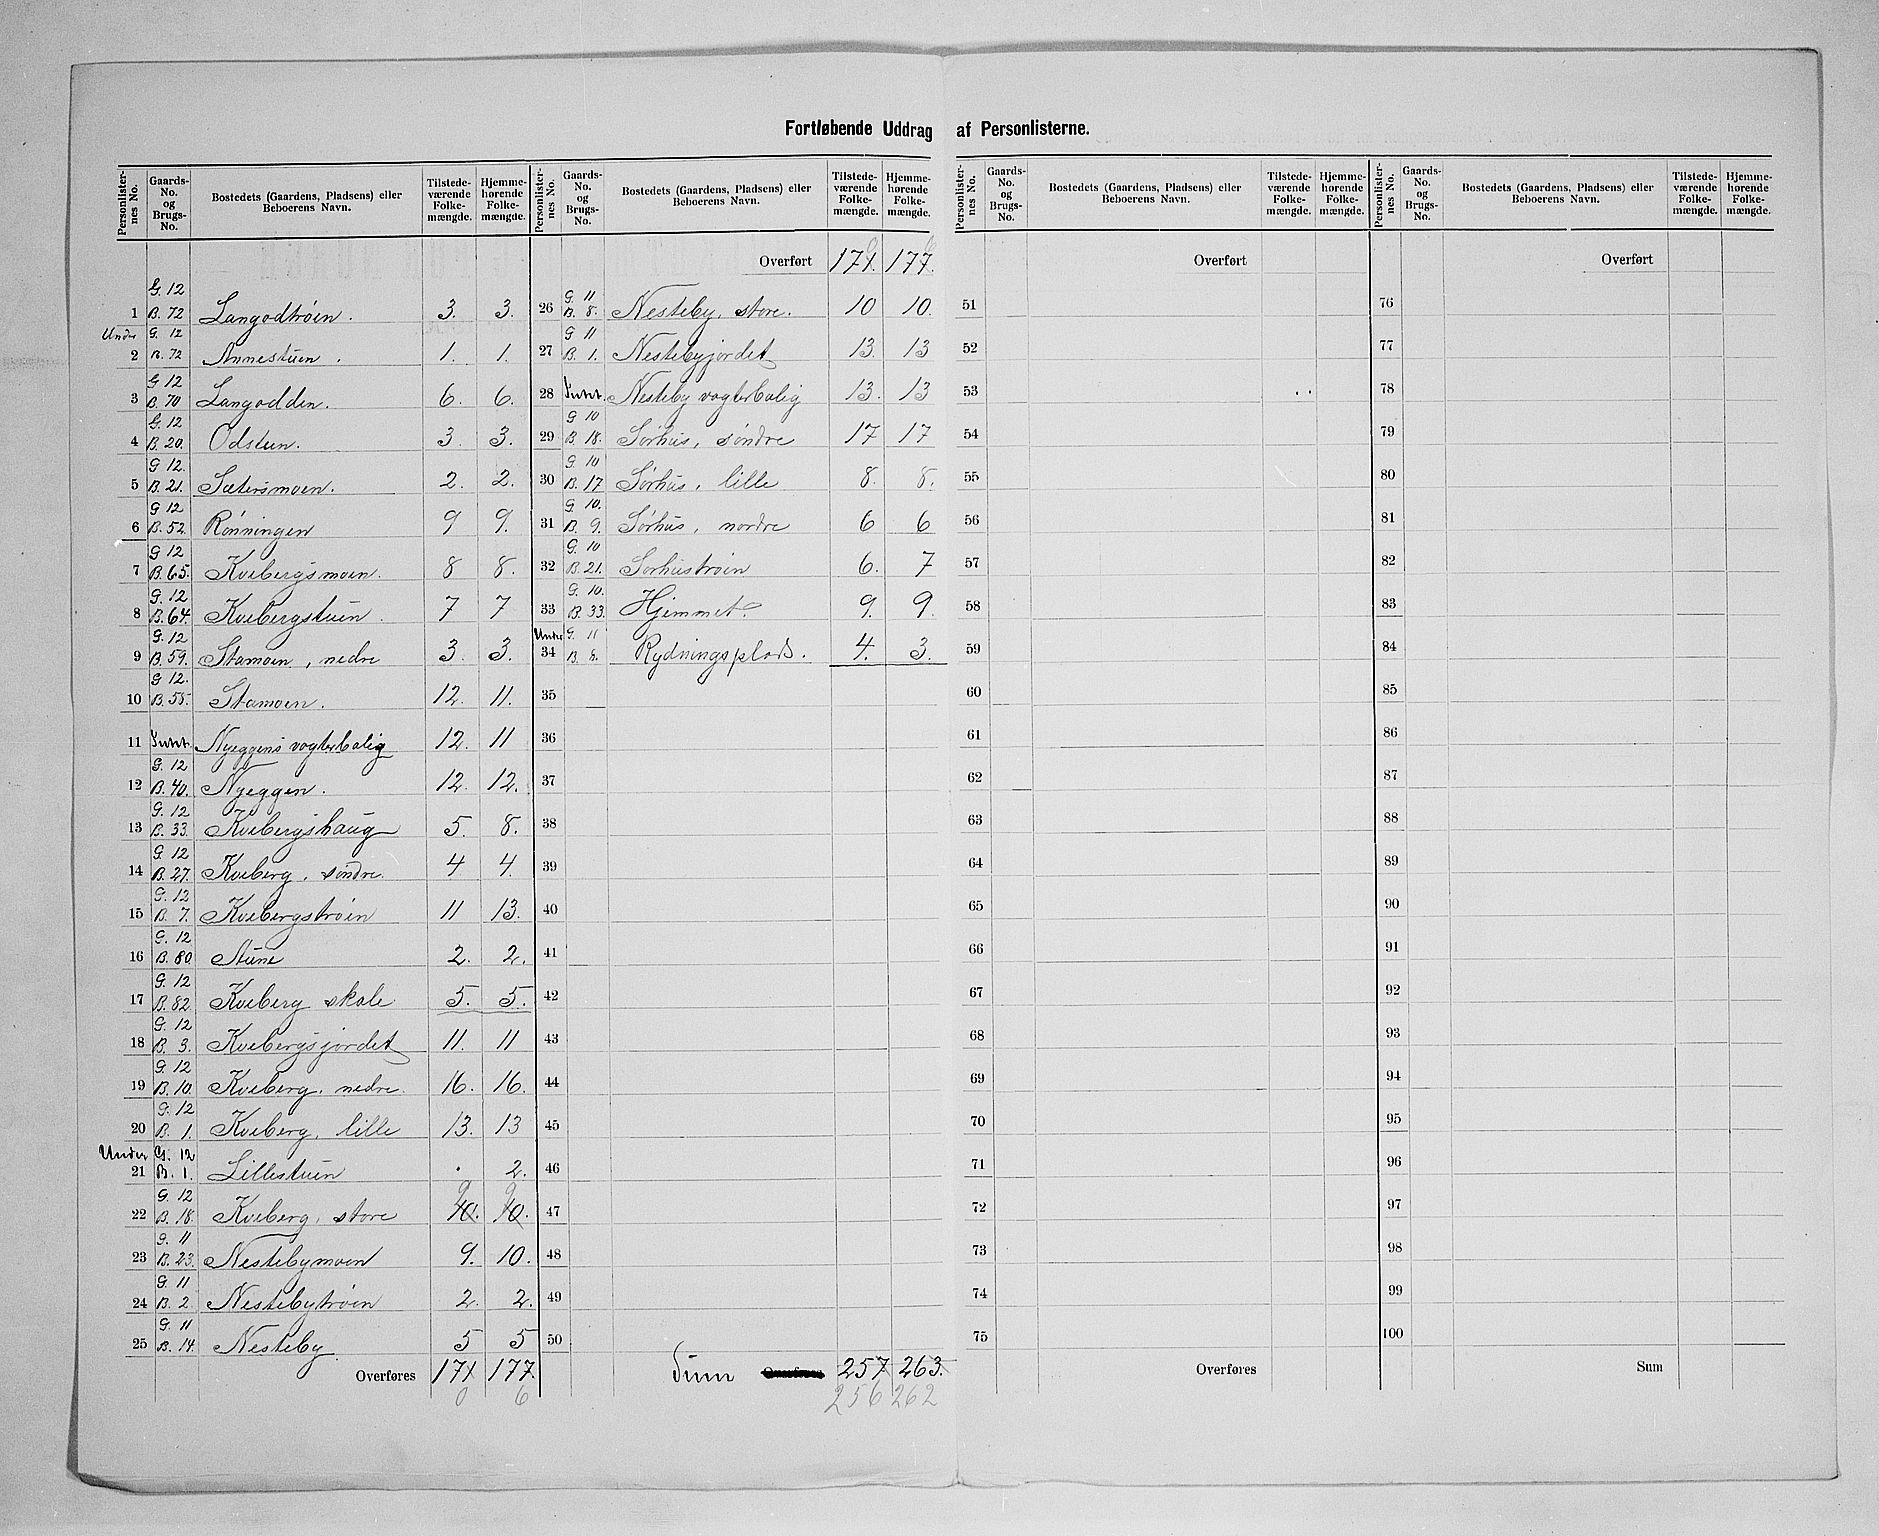 Fortløbende Uddrag af Personlisterne.
Personlister-nes No. | Gaards-No. og Brugs-No. | Bostedets (Gaardens, Pladsens) eller Beboerens Navn. | Tilstede-værende Folke-mængde. | Hjemme-hørende Folke-mængde.
1 | G. 12 B. 72 | Langodtrøen. | 3. | 3.
2 | Under G. 12 B. 72 | Annestuen. | 1. | 1.
3 | G 12 B. 70 | Langodden. | 6. | 6.
4 | G. 12 B. 20. | Odstuen. | 3. | 3.
5 | G 12. B. 21. | Sætersmoen. | 2. | 2.
6 | G 12 B. 52. | Rønningen | 9 | 9.
7 | G 12 B. 65. | Kvebergsmoen. | 8 | 8.
8 | G. 12 B. 64. | Kvebergstuen. | 7 | 7
9 | G. 12 B. 59. | Stamoen, nedre | 3. | 3.
10 | G 12. B. 58. | Stamoen. | 12. | 11.
11 | Nyeggens vogterbolig | 12. | 11
12 | G. 12 B. 40. | Nyeggen. | 12. | 12.
13 | G. 12 B. 33. | Kvebergshaug | 5. | 8.
14 | G. 12 B. 27. | Kveberg, søndre. | 4 | 4.
15 | G. 12 B. 7. | Kvebergstrøen | 11 | 13.
16 | G. 12 B. 80. | Stune | 2. | 2.
17 | G. 12 B. 82 | Kveberg skole | 5. | 5.
18 | G. 12 B. 3. | Kvebergsjordet | 11. | 11
19 | G. 12 B. 10. | Kveberg, nedre. | 16. | 16.
20 | G. 12 B. 1. | Kveberg, lille | 13. | 13
21 | Under G. 12 B. 1. | Lillestuen | . | 2.
22 | G. 12 B. 18. | Kveberg, store | 10. 9 | 10. 9
23 | G. 11 B. 23. | Nestebymoen | 9. | 10.
24 | G. 11 B. 2. | Nestebytrøen | 2. | 2.
25 | G. 11 B. 14. | Nesteby | 5 | 5
Overføres | 171 | 177.
0 | 6
Personlister-nes No. | Gaards-No. og Brugs-No. | Bostedets (Gaardens, Pladsens) eller Beboerens Navn. | Tilstede-værende Folke-mængde. | Hjemme-hørende Folke-mængde.
Overført | 171. | 177.
26 | G. 11 B. 8. | Nesteby, store. | 10 | 10.
27 | G 11 B. 1. | Nestebyjordet | 13. | 13
28 | Nesteby vogterbolig | 13. | 13
29 | G 10 B. 18. | Sørhus, søndre | 17 | 17
30 | G. 10 B. 17 | Sørhus, lille | 8. | 8.
31 | G. 10. B. 9. | Sørhus, nordre | 6 | 6
32 | G. 10 B. 21. | Sørhustrøen | 6. | 7
33 | G. 10. B. 33. | Hjemmet. | 9. | 9.
34 | Under G. 11 B. 8. | Rydningsplads. | 4. | 3.
35
36
37
38
39
40
41
42
43
44
45
46
47
48
49
50
Sum | Overføres | 257 | 263.
256 | 262
Personlister-nes No. | Gaards-No. og Brugs-No. | Bostedets (Gaardens, Pladsens) eller Beboerens Navn. | Tilstede-værende Folke-mængde. | Hjemme-hørende Folke-mængde.
Overført
51
52
53
54
55
56
57
58
59
60
61
62
63
64
65
66
67
68
69
70
71
72
73
74
75
Overføres
Personlister-nes No. | Gaards-No. og Brugs-No. | Bostedets (Gaardens, Pladsens) eller Beboerens Navn. | Tilstede-værende Folke-mængde. | Hjemme-hørende Folke-mængde.
Overført
76
77
78
79
80
81
82
83
84
85
86
87
88
89
90
91
92
93
94
95
96
97
98
99
100
Sum